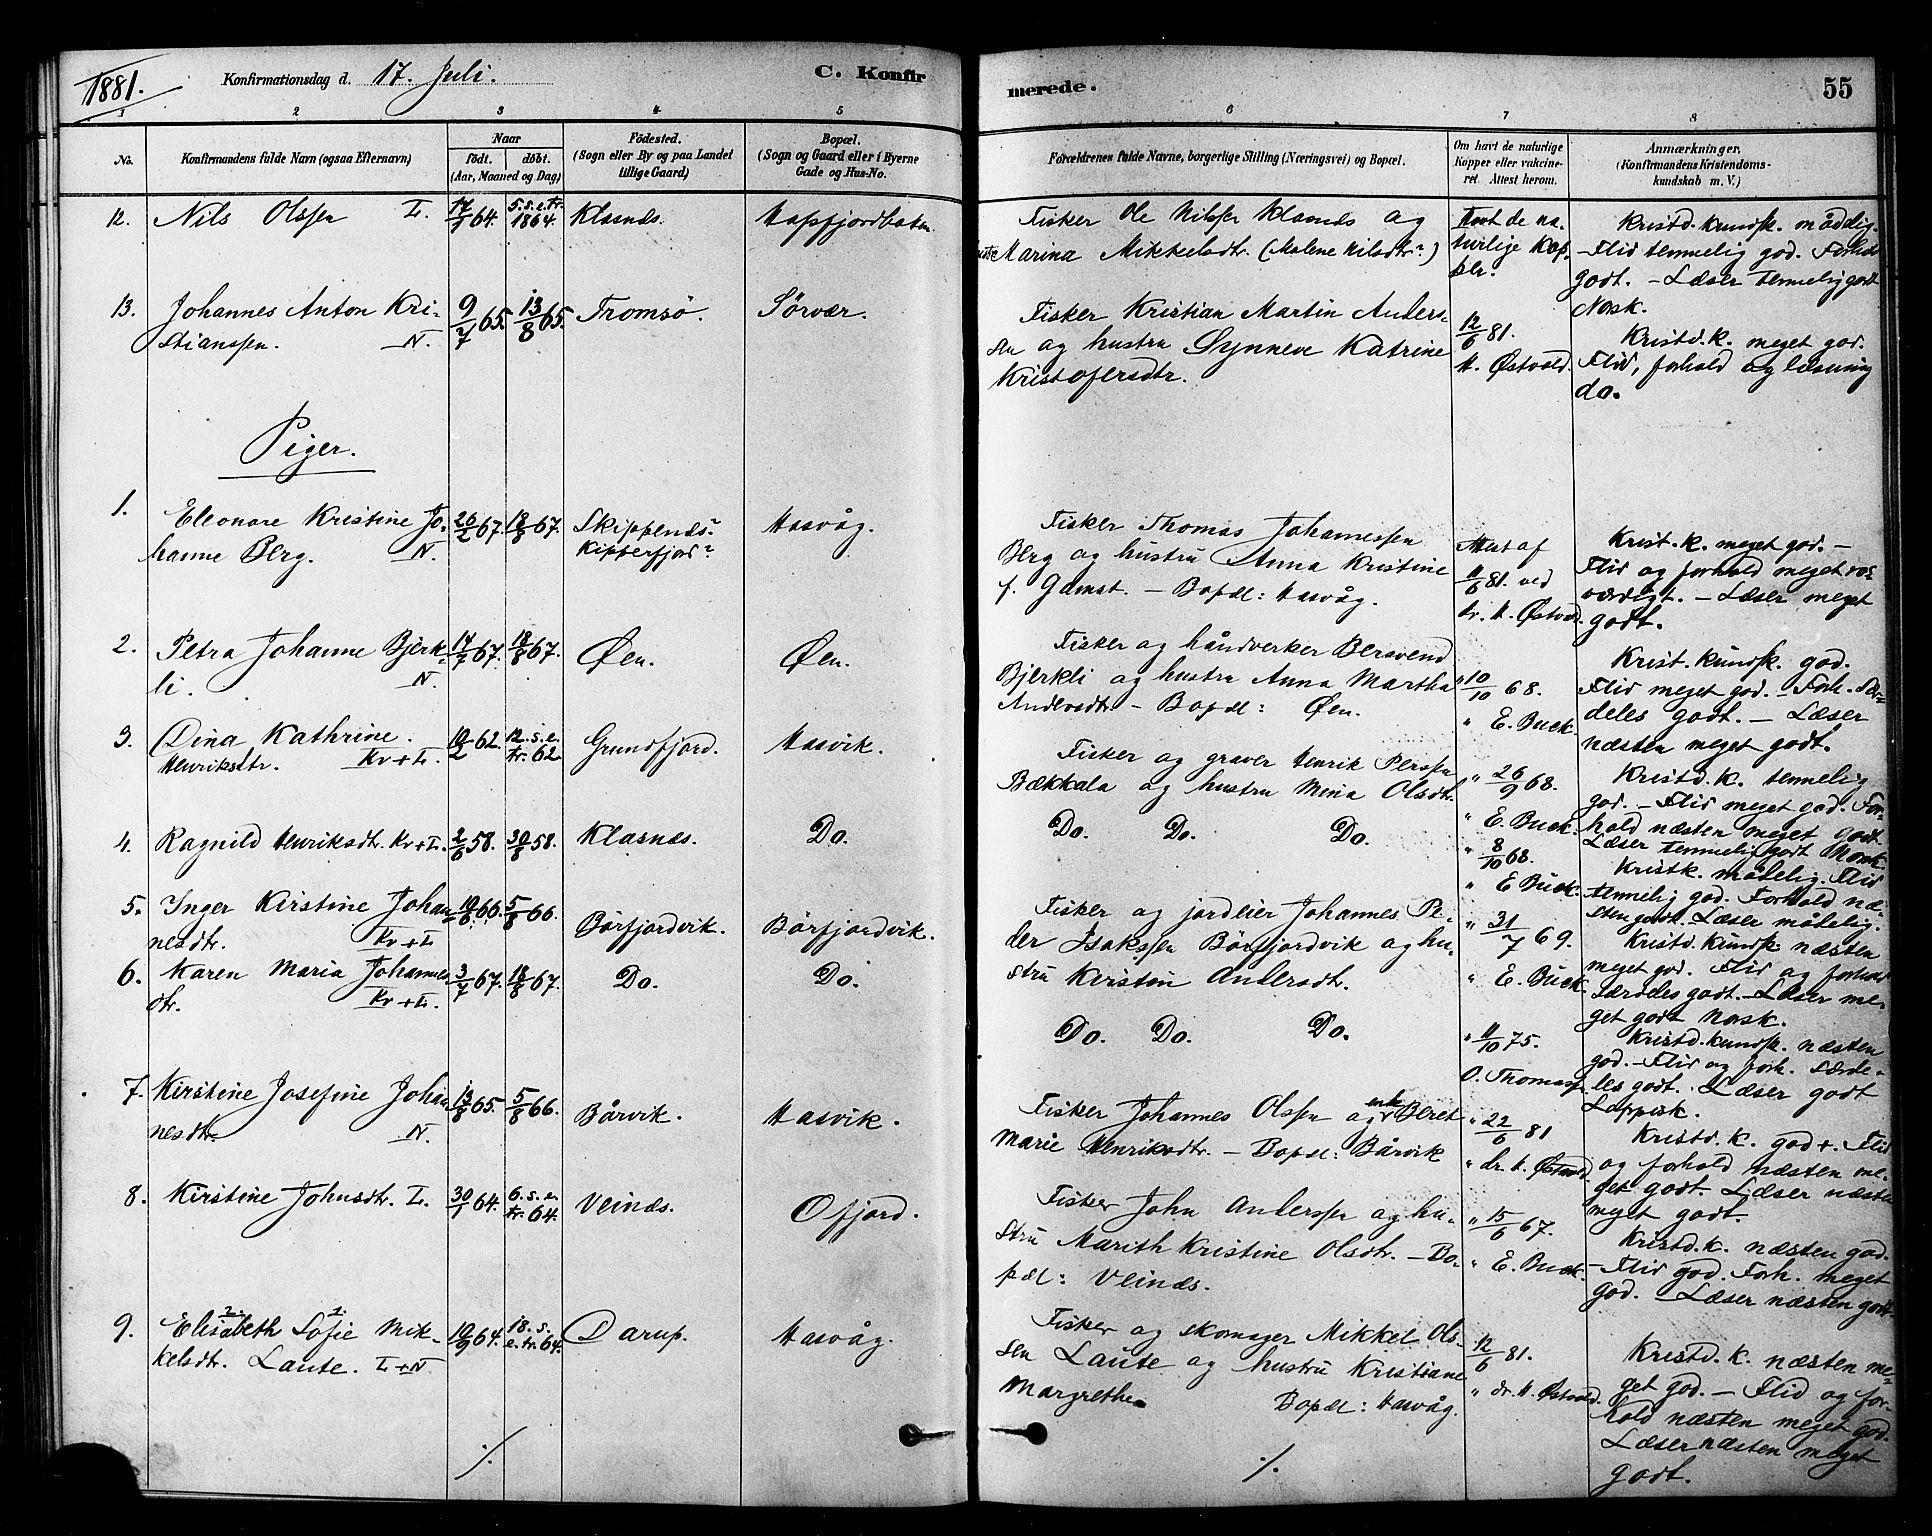 1881.
Konfirmationsdag d. 17. Juli.
C. Konfir
merede.
55
1 2 3 4 5 6 7 8
No.
Konfirmandens fulde Navn (ogsaa Efternavn)
Naar
født. døbt.
(Aar, Maaned og Dag)
Födested.
(Sogn eller By og paa Landet
tillige Gaard)
Bopæl.
(Sogn og Gaard eller i Byerne
Gade og Hus-No.
Forældrenes fulde Navne, borgerlige Stilling (Næringsvei) og Bopæl.
Om havt de naturlige
Kopper eller vakcine-
ret. Attest herom.
Anmærkninger,
(Konfirmandens Kristendoms-
kundskab m. V.)
12. Nils Olssen L. 17/7 64 5. s. e. tr. 1864. Klasnæs.
Fisker Ole Nilssen Klasnæs og
Marina Mikkelsdtr. (Malene Nilsdtr?)
Havt de na-
turlige Kop-
per.
Kristd. kundsk. måddig.
Flid temmelig god. Forhold
godt. - Læser temmelig godt
Norsk.
13. Johannes Anton Kri-
stianssen. N.
9/7 65. 13/8 65. Tromsö. Sörvær.
Fisker Kristian Martin Anders-
sen og hustru Synneve Katrine
Kristofersdtr.
12/6 81.
K. Østvold.
Kristd. K. meget god.
Flid, forhold og læsning
do.
Piger.
1. Eleonore Kristine Jo-
hanne Berg. N.
26/2 67. 18/8 67. Skippernæs?
Kipperfjord? Hasvåg.
Fisker Thomas Johannessen
Berg og hustru Anna Kristine
f. Gamst. - Bopæl: Hasvåg.
Attest af
11/6 81. ved
dr. K. Østvold.
Krist. K. meget god. -
Flid og forhold meget ros-
værdigt. - Læser meget
godt.
2. Petra Johanne Bjerk-
li. N.
14/7 67. 18/8 67. Øen. Øen.
Fisker og håndverker Bersvend
Bjerkli og hustru Anna Martha
Andersdtr. - Bopæl: Øen.
" 10/10 68.
" E. Buck.
Krist. kundsk. god.
Flid meget god. - Forh. sær-
deles godt. - Læser
næsten meget godt.
3. Dina Kathrine.
Henriksdtr. Kv + L.
10/2 62. 12. s. e. tr. 62. Grundfjord. Hasvik.
Fisker og graver Henrik Persen
Bækkala og hustru Mina Olsdtr.
" 26/9 68.
" E. Buck.
Kristd. K. temmelig
god. - Flid meget god. For-
hold næsten meget godt
Læser temmelig godt Norsk.
4. Ragnild Henriksdtr. Kv + L. 2/6 58. 30/8 58. Klasnæs. Do.
Do. Do. Do.
" 8/10 68.
" E Buck.
Kristk. måtelig. Flid
temmelig god. Forhold næ-
sten godt. Læser måtelig.
5. Inger Kirstine Johan-
nesdtr. Kv + L
19/6 66. 5/8 66. Börfjordvik. Börfjordvik.
Fisker og jordeier Johannes Pe-
der Isakssen Börfjordvik og hu-
stru Kirsten Andersdtr.
" 31/7 69.
" E. Buck.
Kristd. kundsk. næsten
meget god. Flid og forhold
særdeles godt. - Læser me-
get godt norsk.
6. Karen Maria Johannes-
dtr. Kv + L.
3/7 67. 18/8 67. Do. Do.
Do. Do. Do.
" 11/10 75.
O. Thomass.
Kristd. kundsk. næsten
god. - Flid og forh. særde-
les godt. Læser godt
Lappisk.
7. Kirstine Josefine Johan-
nesdtr. N.
13/8 65. 5/8 66. Bårvik. Hasvik.
Fisker Johannes Olssen og enk. Beret
Marie Henriksdtr. - Bopæl: Bårvik
" 22/6 81
" dr. K. Østvold.
Kristd. K. god +. Flid
og forhold næsten me-
get godt. Læser næsten
meget godt.
8. Kirstine Johnsdtr. L. 30/1 64. 6. s. e. tr. 64. Veinæs. Ofjord.
Fisker John Anderssen og hu-
stru Marith Kristine Olsdtr. - Bo-
pæl: Veinæs.
" 15/6 67.
" E. Buck.
Kristd. K. næsten god.
- Flid god. Forh. meget
god. - Læser næsten godt.
9. Elisabeth Sofie Mik-
kelsdtr. Laute. L + N
10/9 64. 18. s. e. tr. 64. Darup. Hasvåg.
Fisker og skomager Mikkel Ols-
sen Laute og hustru Kristiane
Margrethe. Bopæl: Hasvåg.
12/6 81.
" dr. K. Østvold.
Kristd. K. næsten me-
get god. - Flid og for-
hold næsten meget god.
Læser næsten meget
godt.
./. ./.